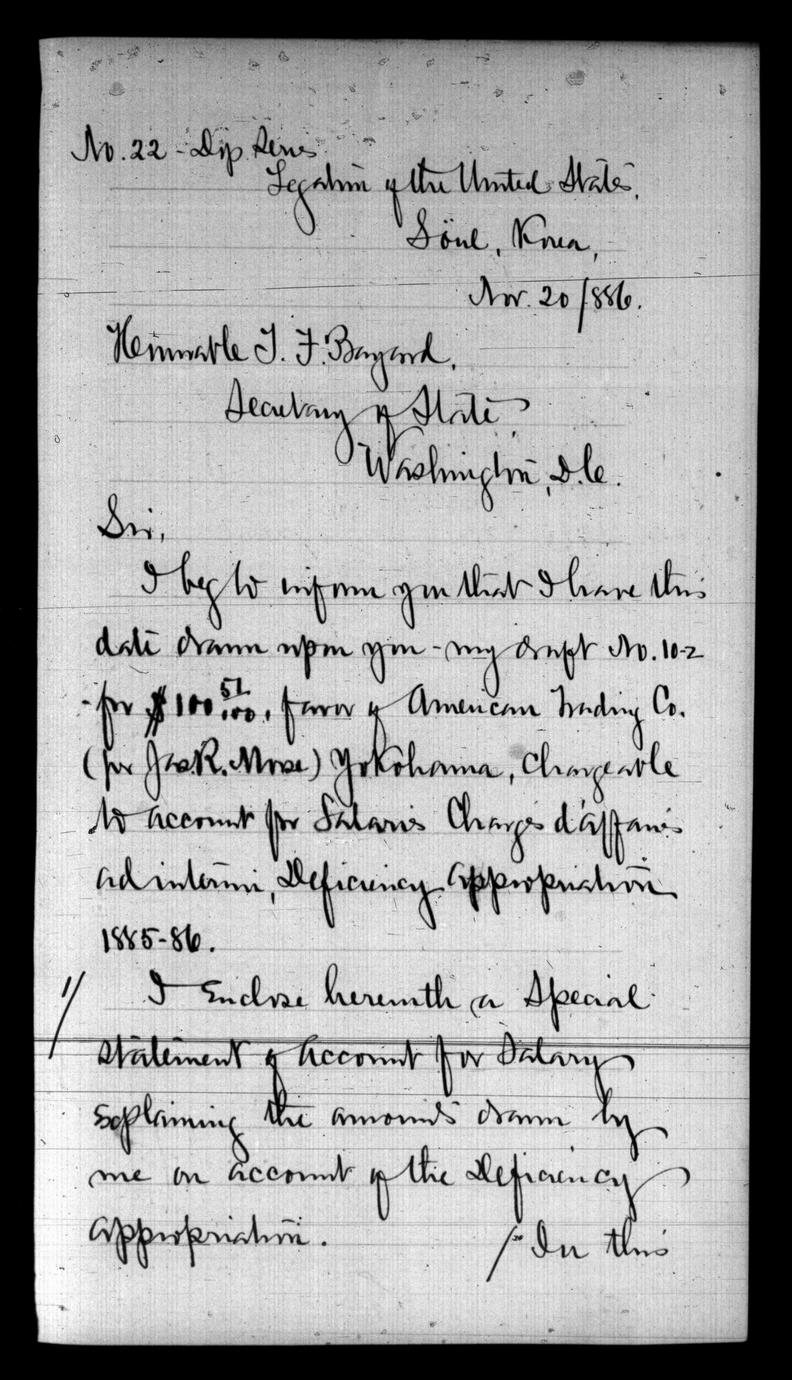 No. 22 - Dip Series
Legation of the United States,
Söul, Korea,
Nov. 20/886.
Honorable T. F. Bayard,
Secretary of State,
Washington, D.C.
Sir,
I beg to inform you that I have this
date drawn upon you - my draft No. 10-2
- for $100 51/100, favor of American Trading Co.
(for Jas. R. Morse) Yokohama, Chargeable
to account for Salaries Chargés d'affaires
ad interim, Deficiency appropriation
1885-86.
1/ I Enclose herewith a Special
statement of account for Salary
explaining the amounts drawn by
me on account of the Deficiency
appropriation.
/ In this